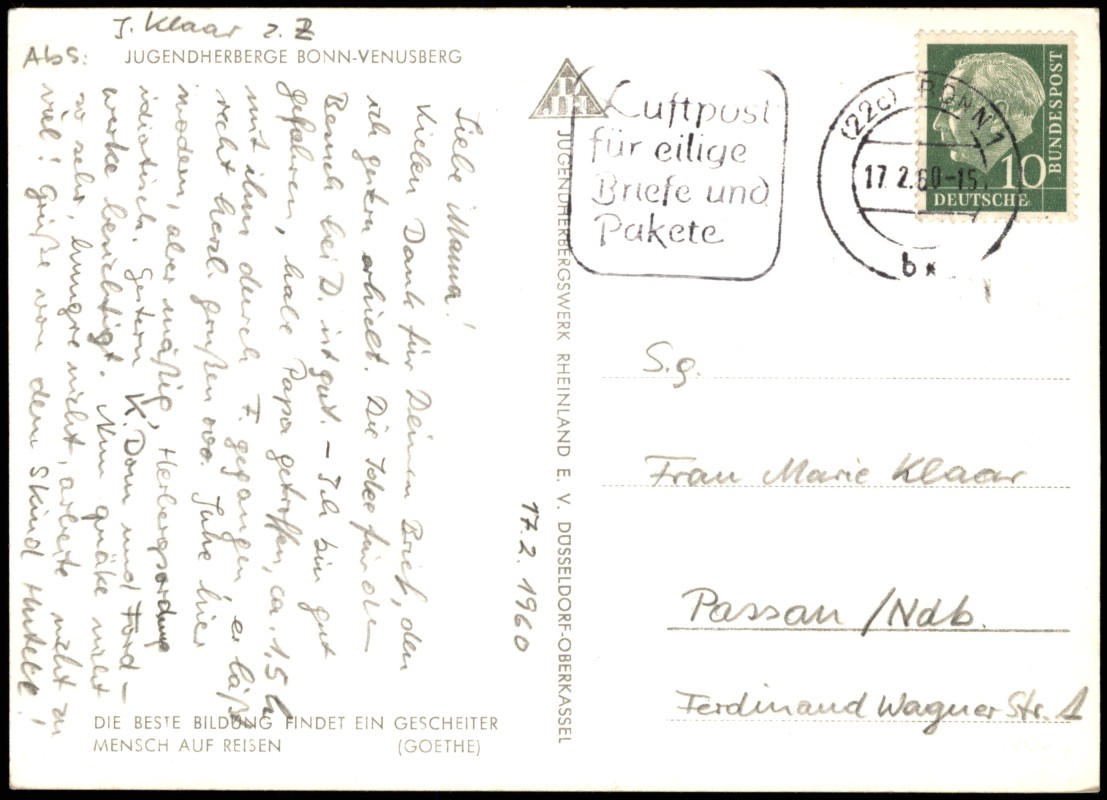 J. Klaar z. Z
Abs: JUGENDHERBERGE BONN-VENUSBERG
Liebe Mama!
Vielen Dank für Deinen Brief, den
ich gestern erhielt. Die Idee für den
Besuch bei D. ist gut. – Ich bin gut
gefahren, habe Papa getroffen, ca. 1,5 h
mit ihm durch F. gegangen, er läßt
recht herzl. grüßen. Juhe hier
modern, aber mäßig, Herbergsordnung
idiotisch. Gestern K. Dom und Ford-
werke besichtigt. Nun quäke nicht
so sehr, hungre nicht, arbeite nicht zu
viel! Grüße von dem
17.2.1960
DIE BESTE BILDUNG FINDET EIN GESCHEITER
MENSCH AUF REISEN (GOETHE)
JUGENDHERBERGSWERK RHEINLAND E. V. DÜSSELDORF-OBERKASSEL
Luftpost
für eilige
Briefe und
Pakete
(22c) BONN 1
17.2.60-15
b
10
DEUTSCHE
BUNDESPOST
S.g.
Frau Marie Klaar
Passau /Ndb.
Ferdinand Wagner Str. 1